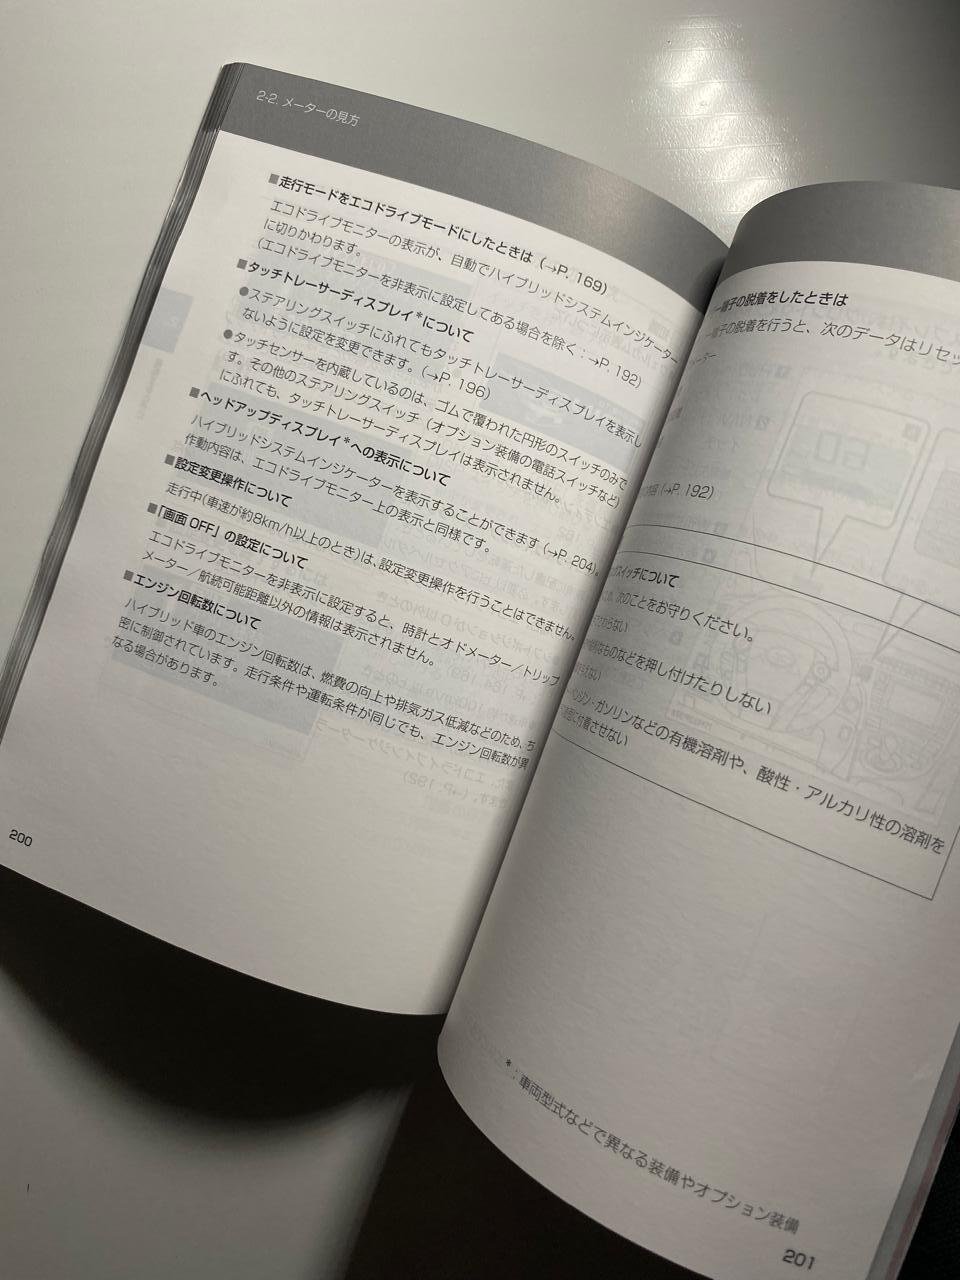 2-2. メーターの見方
■走行モードをエコドライブモードにしたときは (→P. 169)
エコドライブモニターの表示が、自動でハイブリッドシステムインジケーター
に切りかわります。
(エコドライブモニターを非表示に設定してある場合を除く:→P. 192)
■タッチトレーサーディスプレイ*について
●ステアリングスイッチにふれてもタッチトレーサーディスプレイを表示し
ないように設定を変更できます。(→P. 196)
●タッチセンサーを内蔵しているのは、ゴムで覆われた円形のスイッチのみで
す。その他のステアリングスイッチ (オプション装備の電話スイッチなど)
にふれても、タッチトレーサーディスプレイは表示されません。
■ヘッドアップディスプレイ*への表示について
ハイブリッドシステムインジケーターを表示することができます (→P. 204)。
作動内容は、エコドライブモニター上の表示と同様です。
■設定変更操作について
走行中(車速が約8km/h以上のとき)は、設定変更操作を行うことはできません。
■「画面 OFF」の設定について
エコドライブモニターを非表示に設定すると、時計とオドメーター/トリップ
メーター/航続可能距離以外の情報は表示されません。
■エンジン回転数について
ハイブリッド車のエンジン回転数は、燃費の向上や排気ガス低減などのため、ち
密に制御されています。走行条件や運転条件が同じでも、エンジン回転数が異
なる場合があります。
200
端子の脱着をしたときは
端子の脱着を行うと、次のデータはリセッ
ーター
(→P. 192)
スイッチについて
次のことをお守りください。
ものなどを押し付けたりしない
ンジン・ガソリンなどの有機溶剤や、酸性・アルカリ性の溶剤を
付着させない
*:車両型式などで異なる装備やオプション装備
201